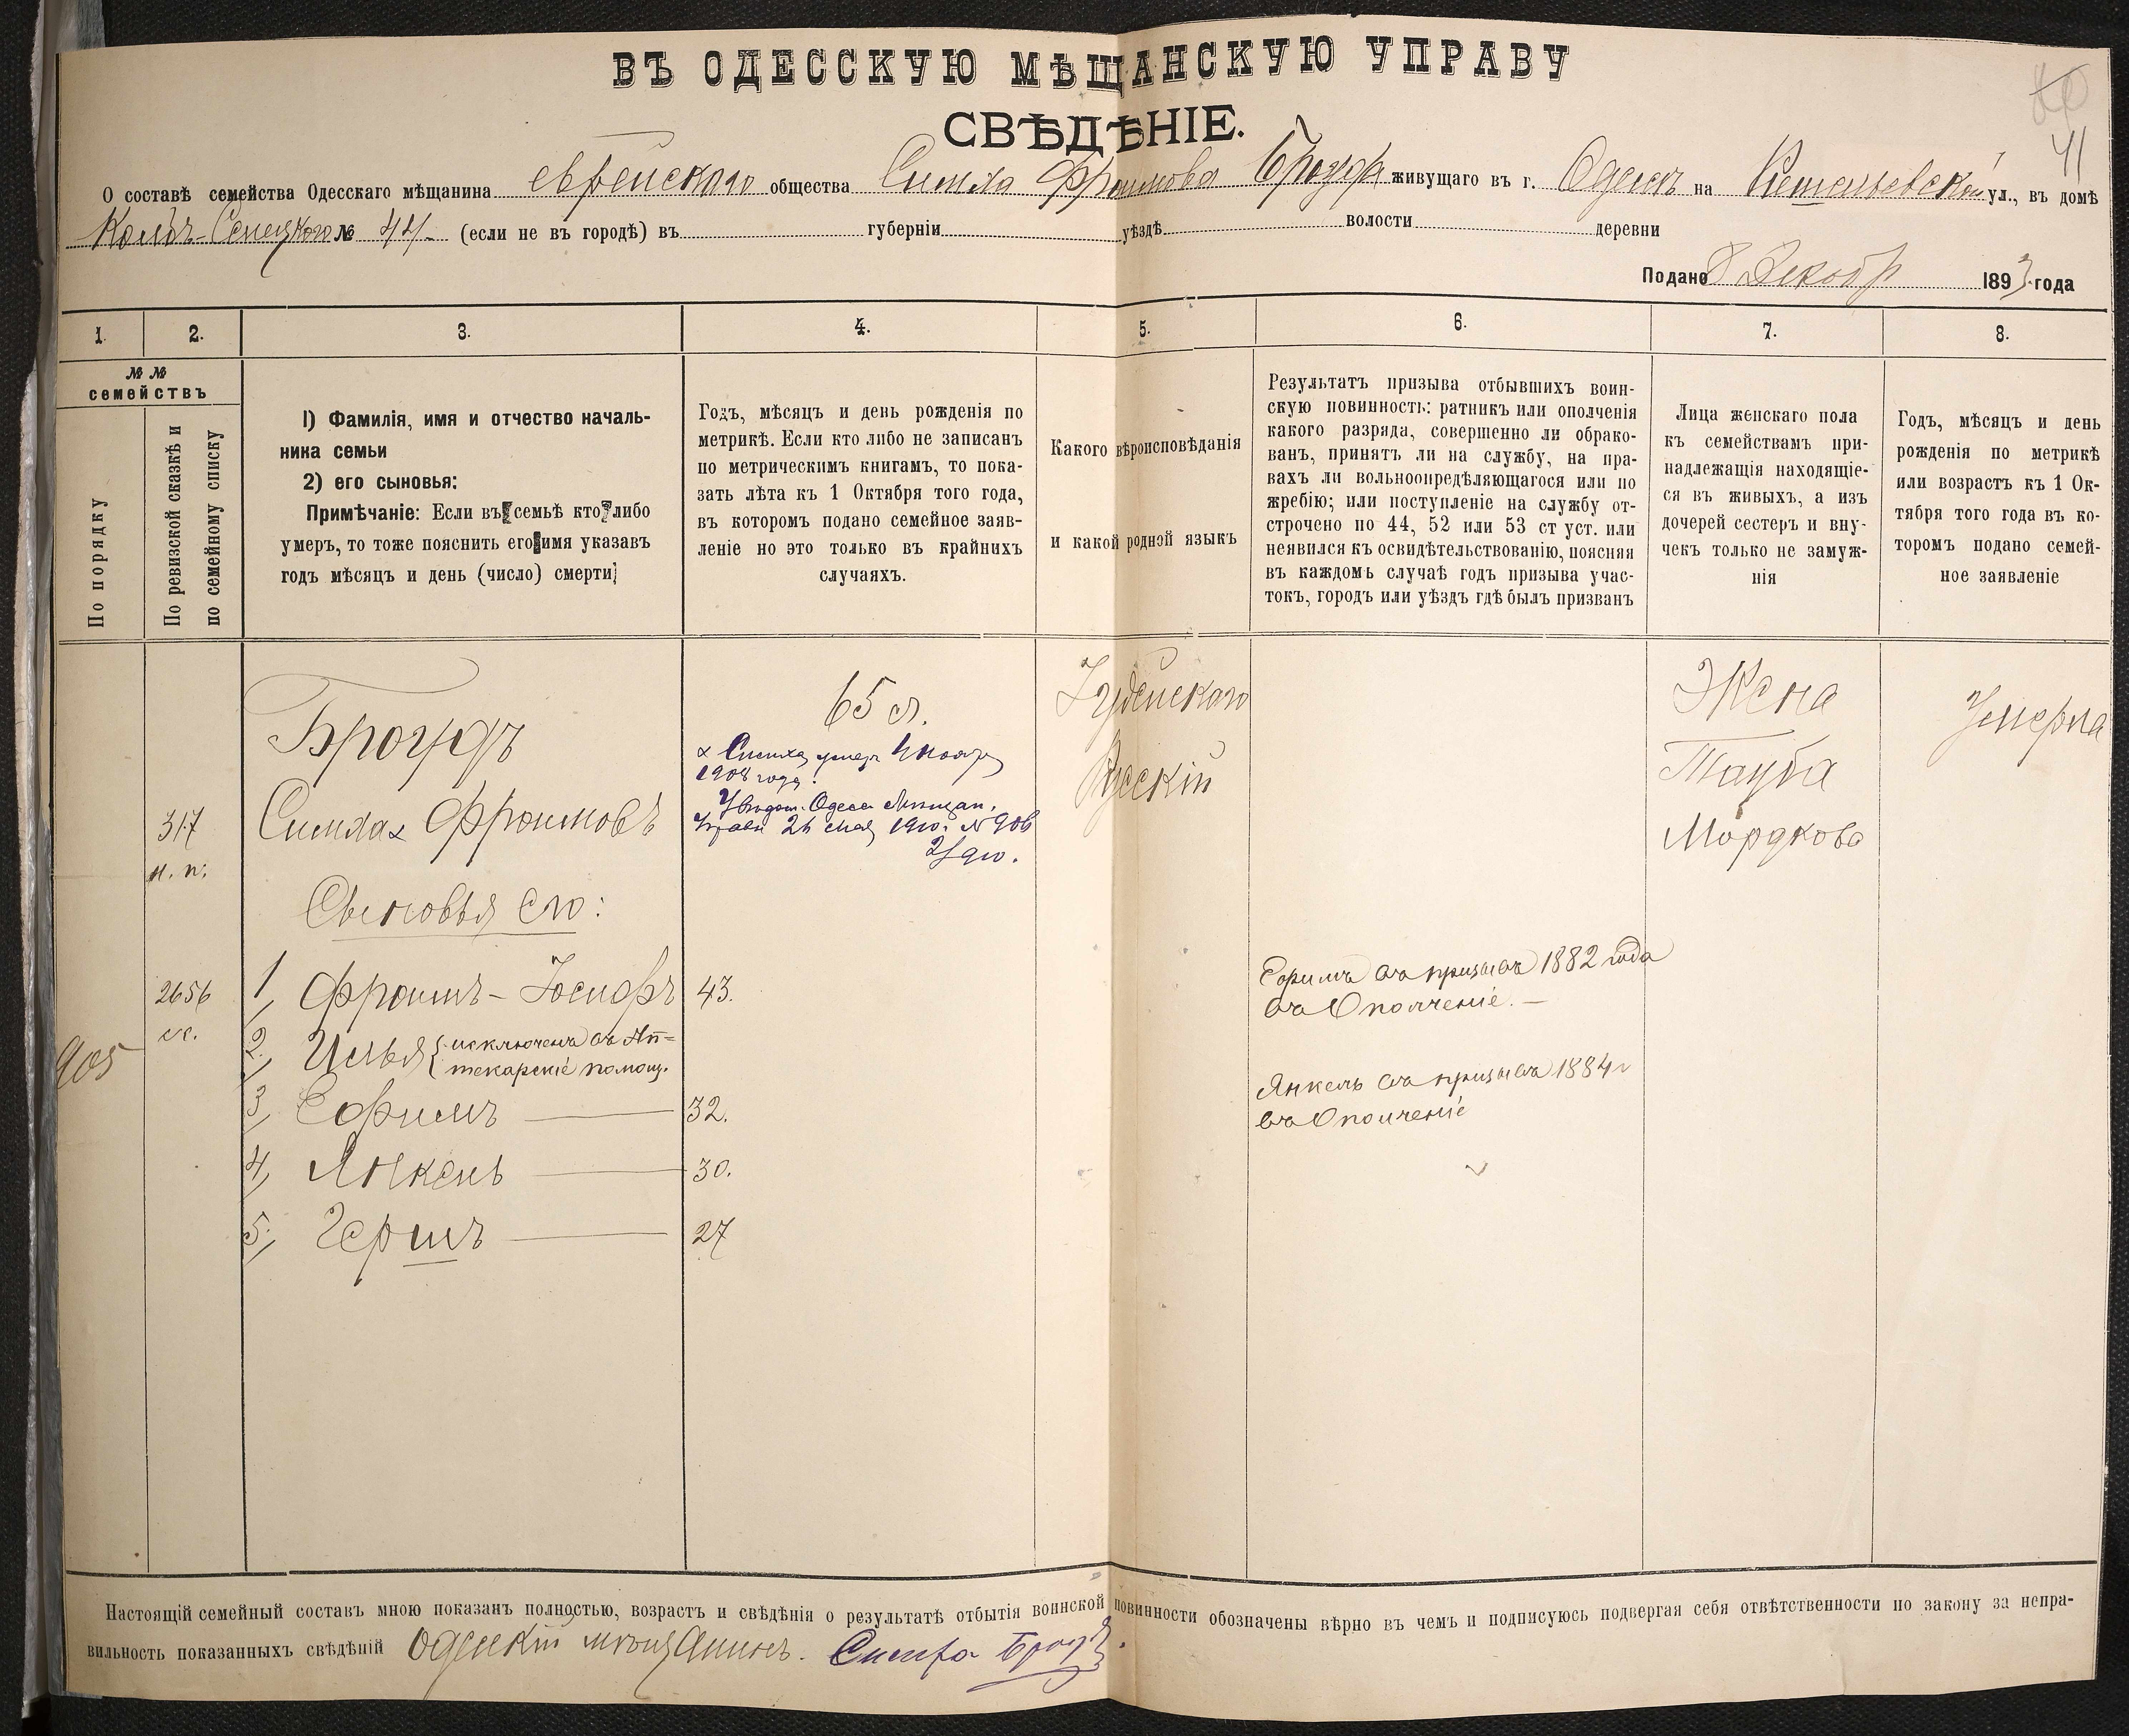 ВЪ ОДЕССКУЮ МѢЩАНСКУЮ УПРАВУ
СВѢДѢНІЕ.
41
О составѣ семейства Одесскаго мѣщанина еврейскаго общества Симха Фроимова Бродъ живущаго въ г. Одессѣ на ул., въ домѣ
№ 44 (если не въ городѣ) въ губерніи уѣздѣ волости деревни
Подано 8 Декабр 1893 года
1. 2. 3. 4. 5. 6. 7. 8.
№ №
семействъ
По порядку
По ревизской сказкѣ и
по семейному списку
1) Фамилія, имя и отчество началь-
ника семьи
2) его сыновья:
Примѣчаніе: Если въ семьѣ кто либо
умеръ, то тоже пояснить его имя указавъ
годъ мѣсяцъ и день (число) смерти
Годъ, мѣсяцъ и день рожденія по
метрикѣ. Если кто либо не записанъ
по метрическимъ книгамъ, то пока-
зать лѣта къ 1 Октября того года,
въ которомъ подано семейное заяв-
леніе но это только въ крайнихъ
случаяхъ.
Какого вѣроисповѣданія
и какой родной языкъ
Результатъ призыва отбывшихъ воин-
скую повинность: ратникъ или ополченія
какого разряда, совершенно ли обрако-
ванъ, принятъ ли на службу, на пра-
вахъ ли вольноопредѣляющагося или по
жребію; или поступленіе на службу от-
строчено по 44, 52 или 53 ст уст. или
неявился къ освидѣтельствованію, поясняя
въ каждомъ случаѣ годъ призыва учас-
токъ, городъ или уѣздъ гдѣ былъ призванъ
Лица женскаго пола
къ семействамъ при-
надлежащія находящіе-
ся въ живыхъ, а изъ
дочерей сестеръ и вну-
чекъ только не замуж-
нія
Годъ, мѣсяцъ и день
рожденія по метрикѣ
или возрастъ къ 1 Ок-
тября того года въ ко-
торомъ подано семей-
ное заявленіе
905
317
н. п.
2656
Бродъ
Симха Фроимовъ
Сыновья его:
1, Фроимъ-Іосифъ 43.
2, Илья {исключенъ въ Ап=
текарскіе помощ.
3, Ефимъ 32.
4, Янкель 30.
5, Гершъ 27
65 л.
Симха умеръ 4 ноября
1908 года.
Увѣдом. Одесс. Мѣщан.
Управы 26 мая 1910 г. № 906
Іудейскаго
Русскій
Ефимъ въ призывъ 1882 года
въ Ополченіе. —
Янкель въ призывъ 1884 г
въ Ополченіе
Жена
Тауба
Мордкова
Умерла
Настоящій семейный составъ мною показанъ полностью, возрастъ и свѣдѣнія о результатѣ отбытія воинской повинности обозначены вѣрно въ чемъ и подписуюсь подвергая себя отвѣтственности по закону за непра-
вильность показанныхъ свѣдѣній Одесскій мѣщанинъ. Симха Бродъ.